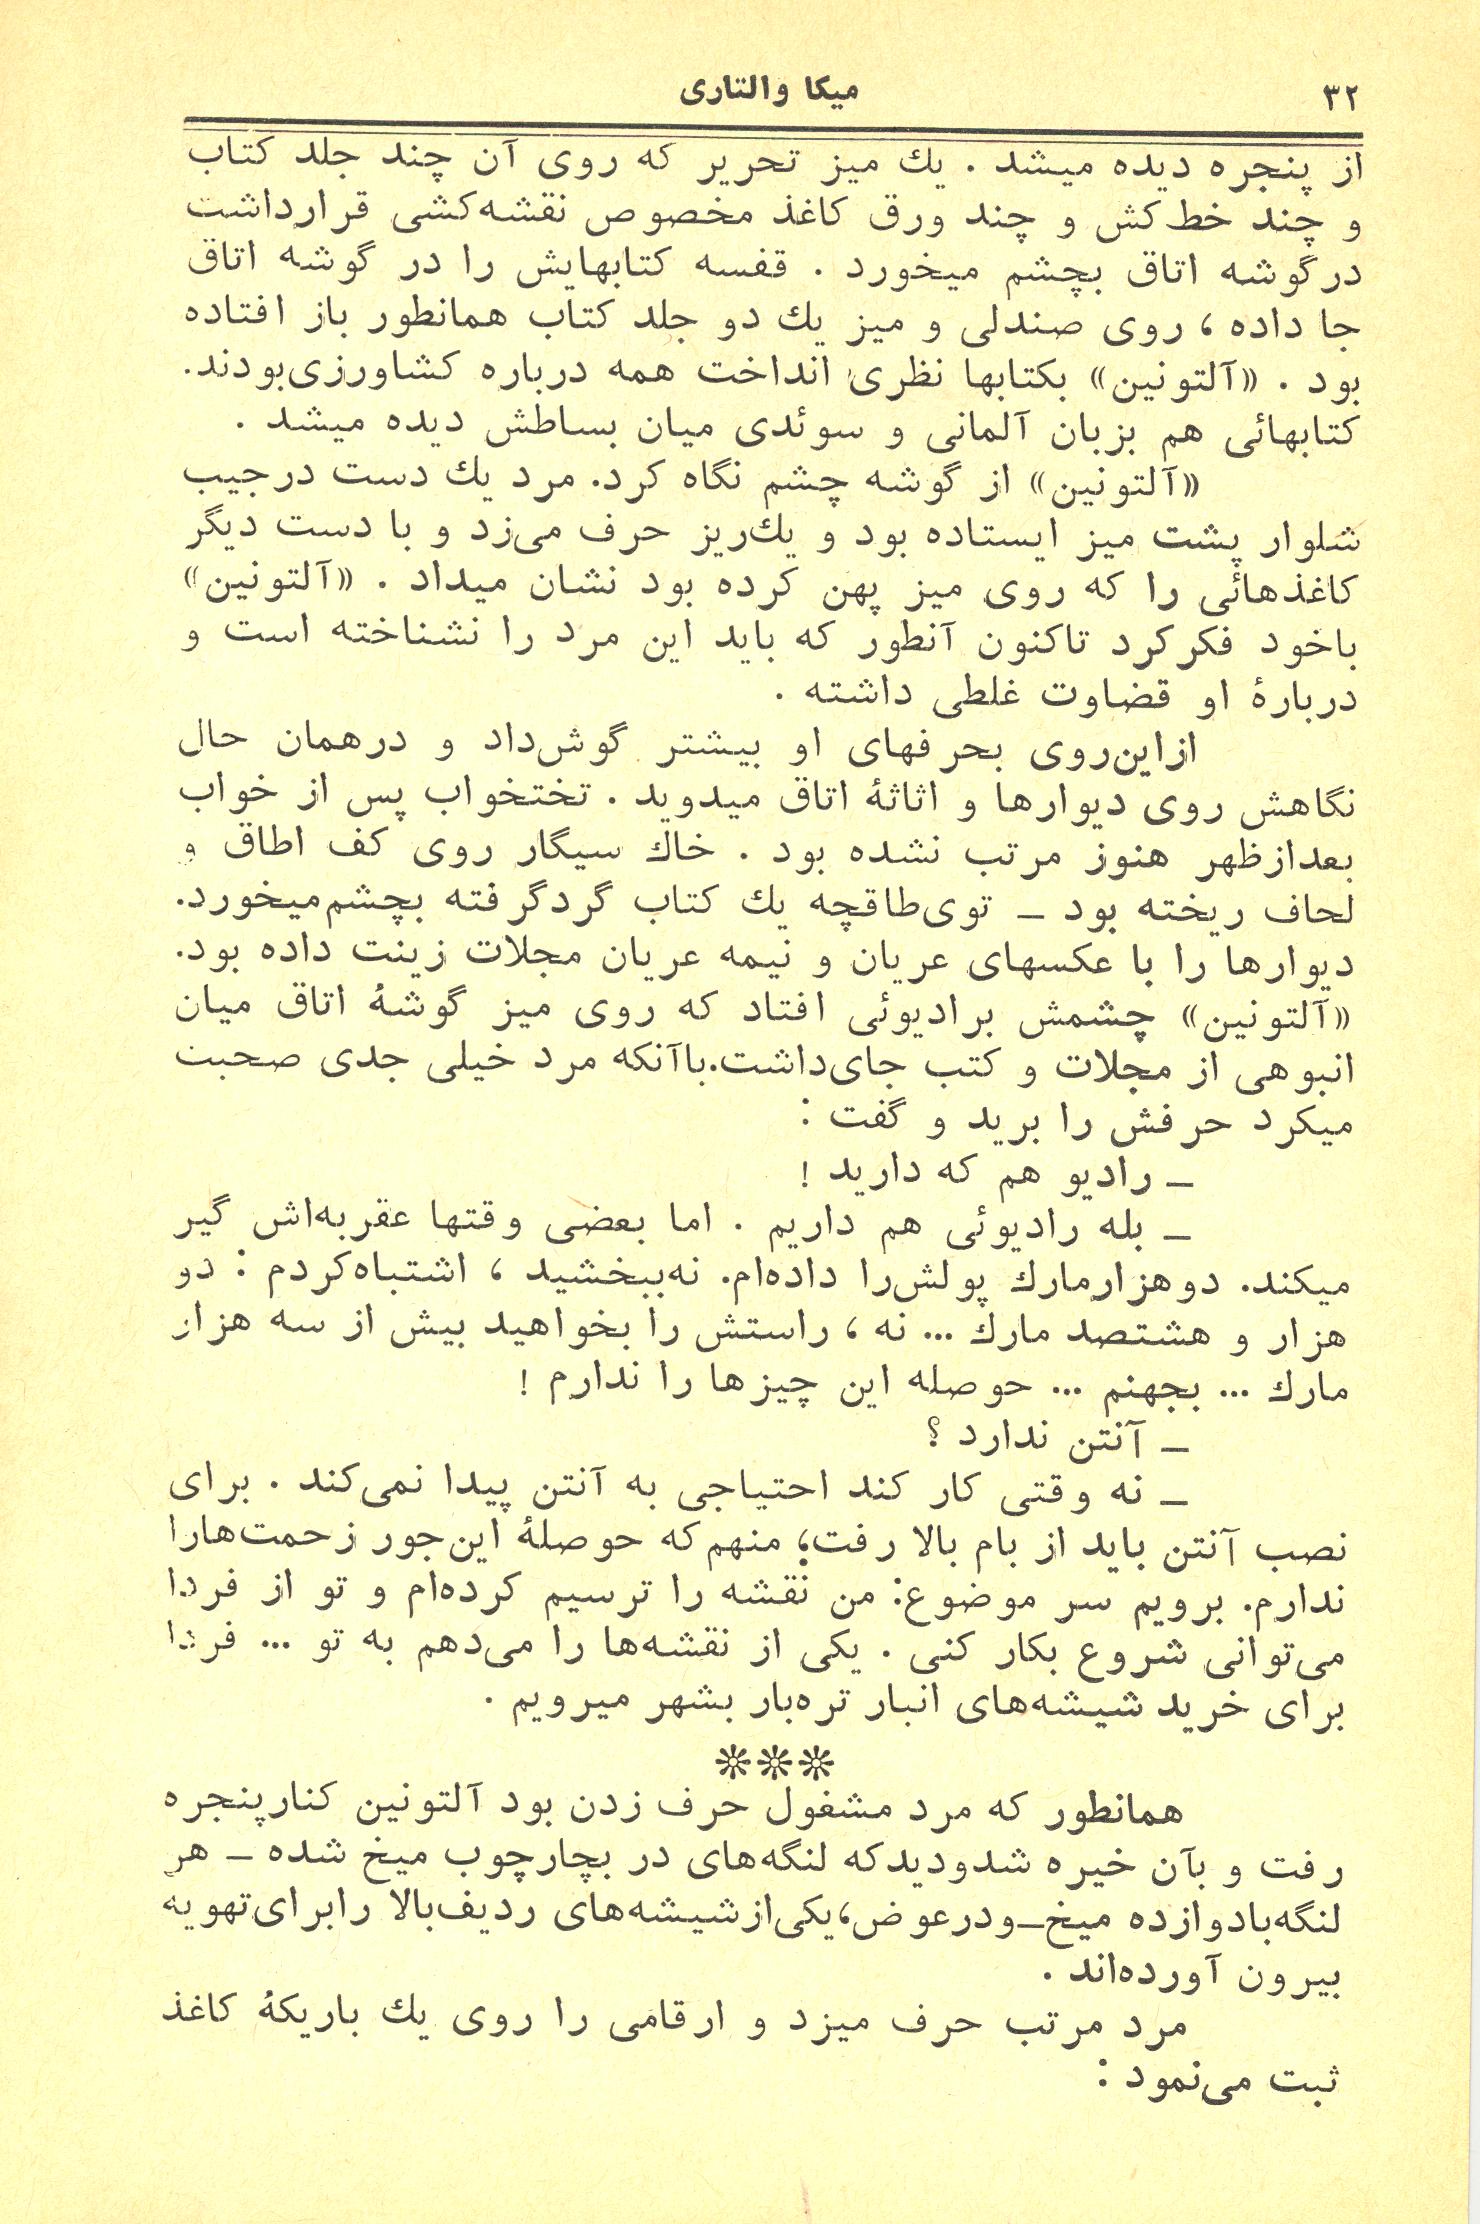 ۳۲
میکا والتاری
از پنجره دیده میشد . یك میز تحریر که روی آن چند جلد کتاب
و چند خط‌کش و چند ورق کاغذ مخصوص نقشه‌کشی قرارداشت
درگوشه اتاق بچشم میخورد . قفسه کتابهایش را در گوشه اتاق
جا داده ، روی صندلی و میز یك دو جلد کتاب همانطور باز افتاده
بود . «آلتونین» بکتابها نظری انداخت همه درباره کشاورزی‌بودند.
کتابهائی هم بزبان آلمانی و سوئدی میان بساطش دیده میشد .
«آلتونین» از گوشه چشم نگاه کرد. مرد یك دست درجیب
شلوار پشت میز ایستاده بود و یك‌ریز حرف می‌زد و با دست دیگر
کاغذهائی را که روی میز پهن کرده بود نشان میداد . «آلتونین»
باخود فکرکرد تاکنون آنطور که باید این مرد را نشناخته است و
دربارۀ او قضاوت غلطی داشته .
ازاین‌روی بحرفهای او بیشتر گوش‌داد و درهمان حال
نگاهش روی دیوارها و اثاثۀ اتاق میدوید . تختخواب پس از خواب
بعدازظهر هنوز مرتب نشده بود . خاك سیگار روی کف اطاق و
لحاف ریخته بود ـ توی‌طاقچه یك کتاب گردگرفته بچشم‌میخورد.
دیوارها را با عکسهای عریان و نیمه عریان مجلات زینت داده بود.
«آلتونین» چشمش برادیوئی افتاد که روی میز گوشۀ اتاق میان
انبوهی از مجلات و کتب جای‌داشت.باآنکه مرد خیلی جدی صحبت
میکرد حرفش را برید و گفت :
ـ رادیو هم که دارید !
ـ بله رادیوئی هم داریم . اما بعضی وقتها عقربه‌اش گیر
میکند. دوهزارمارك پولش‌را داده‌ام. نه‌ببخشید ، اشتباه‌کردم : دو
هزار و هشتصد مارك ... نه ، راستش را بخواهید بیش از سه هزار
مارك ... بجهنم ... حوصله این چیزها را ندارم !
ـ آنتن ندارد ؟
ـ نه وقتی کار کند احتیاجی به آنتن پیدا نمی‌کند . برای
نصب آنتن باید از بام بالا رفت؛ منهم‌که حوصلۀ این‌جور زحمت‌هارا
ندارم. برویم سر موضوع: من نقشه را ترسیم کرده‌ام و تو از فردا
می‌توانی شروع بکار کنی . یکی از نقشه‌ها را می‌دهم به تو ... فردا
برای خرید شیشه‌های انبار تره‌بار بشهر میرویم .
❊❊❊
همانطور که مرد مشغول حرف زدن بود آلتونین کنارپنجره
رفت و بآن خیره شدودیدکه لنگه‌های در بچارچوب میخ شده ـ هر
لنگه‌بادوازده میخ‌ـودرعوض،یکی‌ازشیشه‌های ردیف‌بالا رابرای‌تهویه
بیرون آورده‌اند .
مرد مرتب حرف میزد و ارقامی را روی یك باریکۀ کاغذ
ثبت می‌نمود :